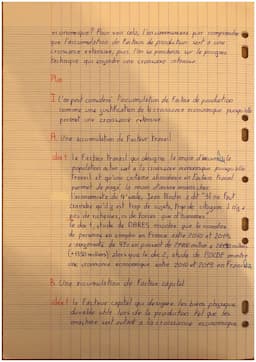 économique? Pour voir cela, l'on commencera par comprendre
que l'accumulation de facteurs de production sert à une
croissance extensive, puis, l'on se penchera sur le progrès
technique qui engendre une croissance intensive.
Plan
I. L'on peut considérer l'accumulation de facteur de production
comme une justification de la croissance économique puisqu'elle
permet une croissance extensive.
A. Une accumulation de facteur travail
idée 1: Le facteur travail qui désigne la main d'œuvre,
population active sert à la croissance économique puisqu'elle
travail et qu'une certaine abondance en facteur travail
permet de
l'économiste du siècle, Jean Bodin a dit "Il ne faut
craindre qu'il y ait trop de sujets, trop de citoyens il n'y a
pas de richesses, ni de forces que d'hommes"
le doc 1, étude de DARES montre que le nombre
de personne en emploi en France entre 2010 et 2019
a augmenté de
alors que le doc 2, étude de l'OCDE montre
une croissance économique entre 2010 et 2019 en France
B. Une accumulation de facteur capital
idée 1: Le facteur capital qui désigne les biens physiques
durable utilisé lors de la production tel que les
machines sert autant à la croissance économique